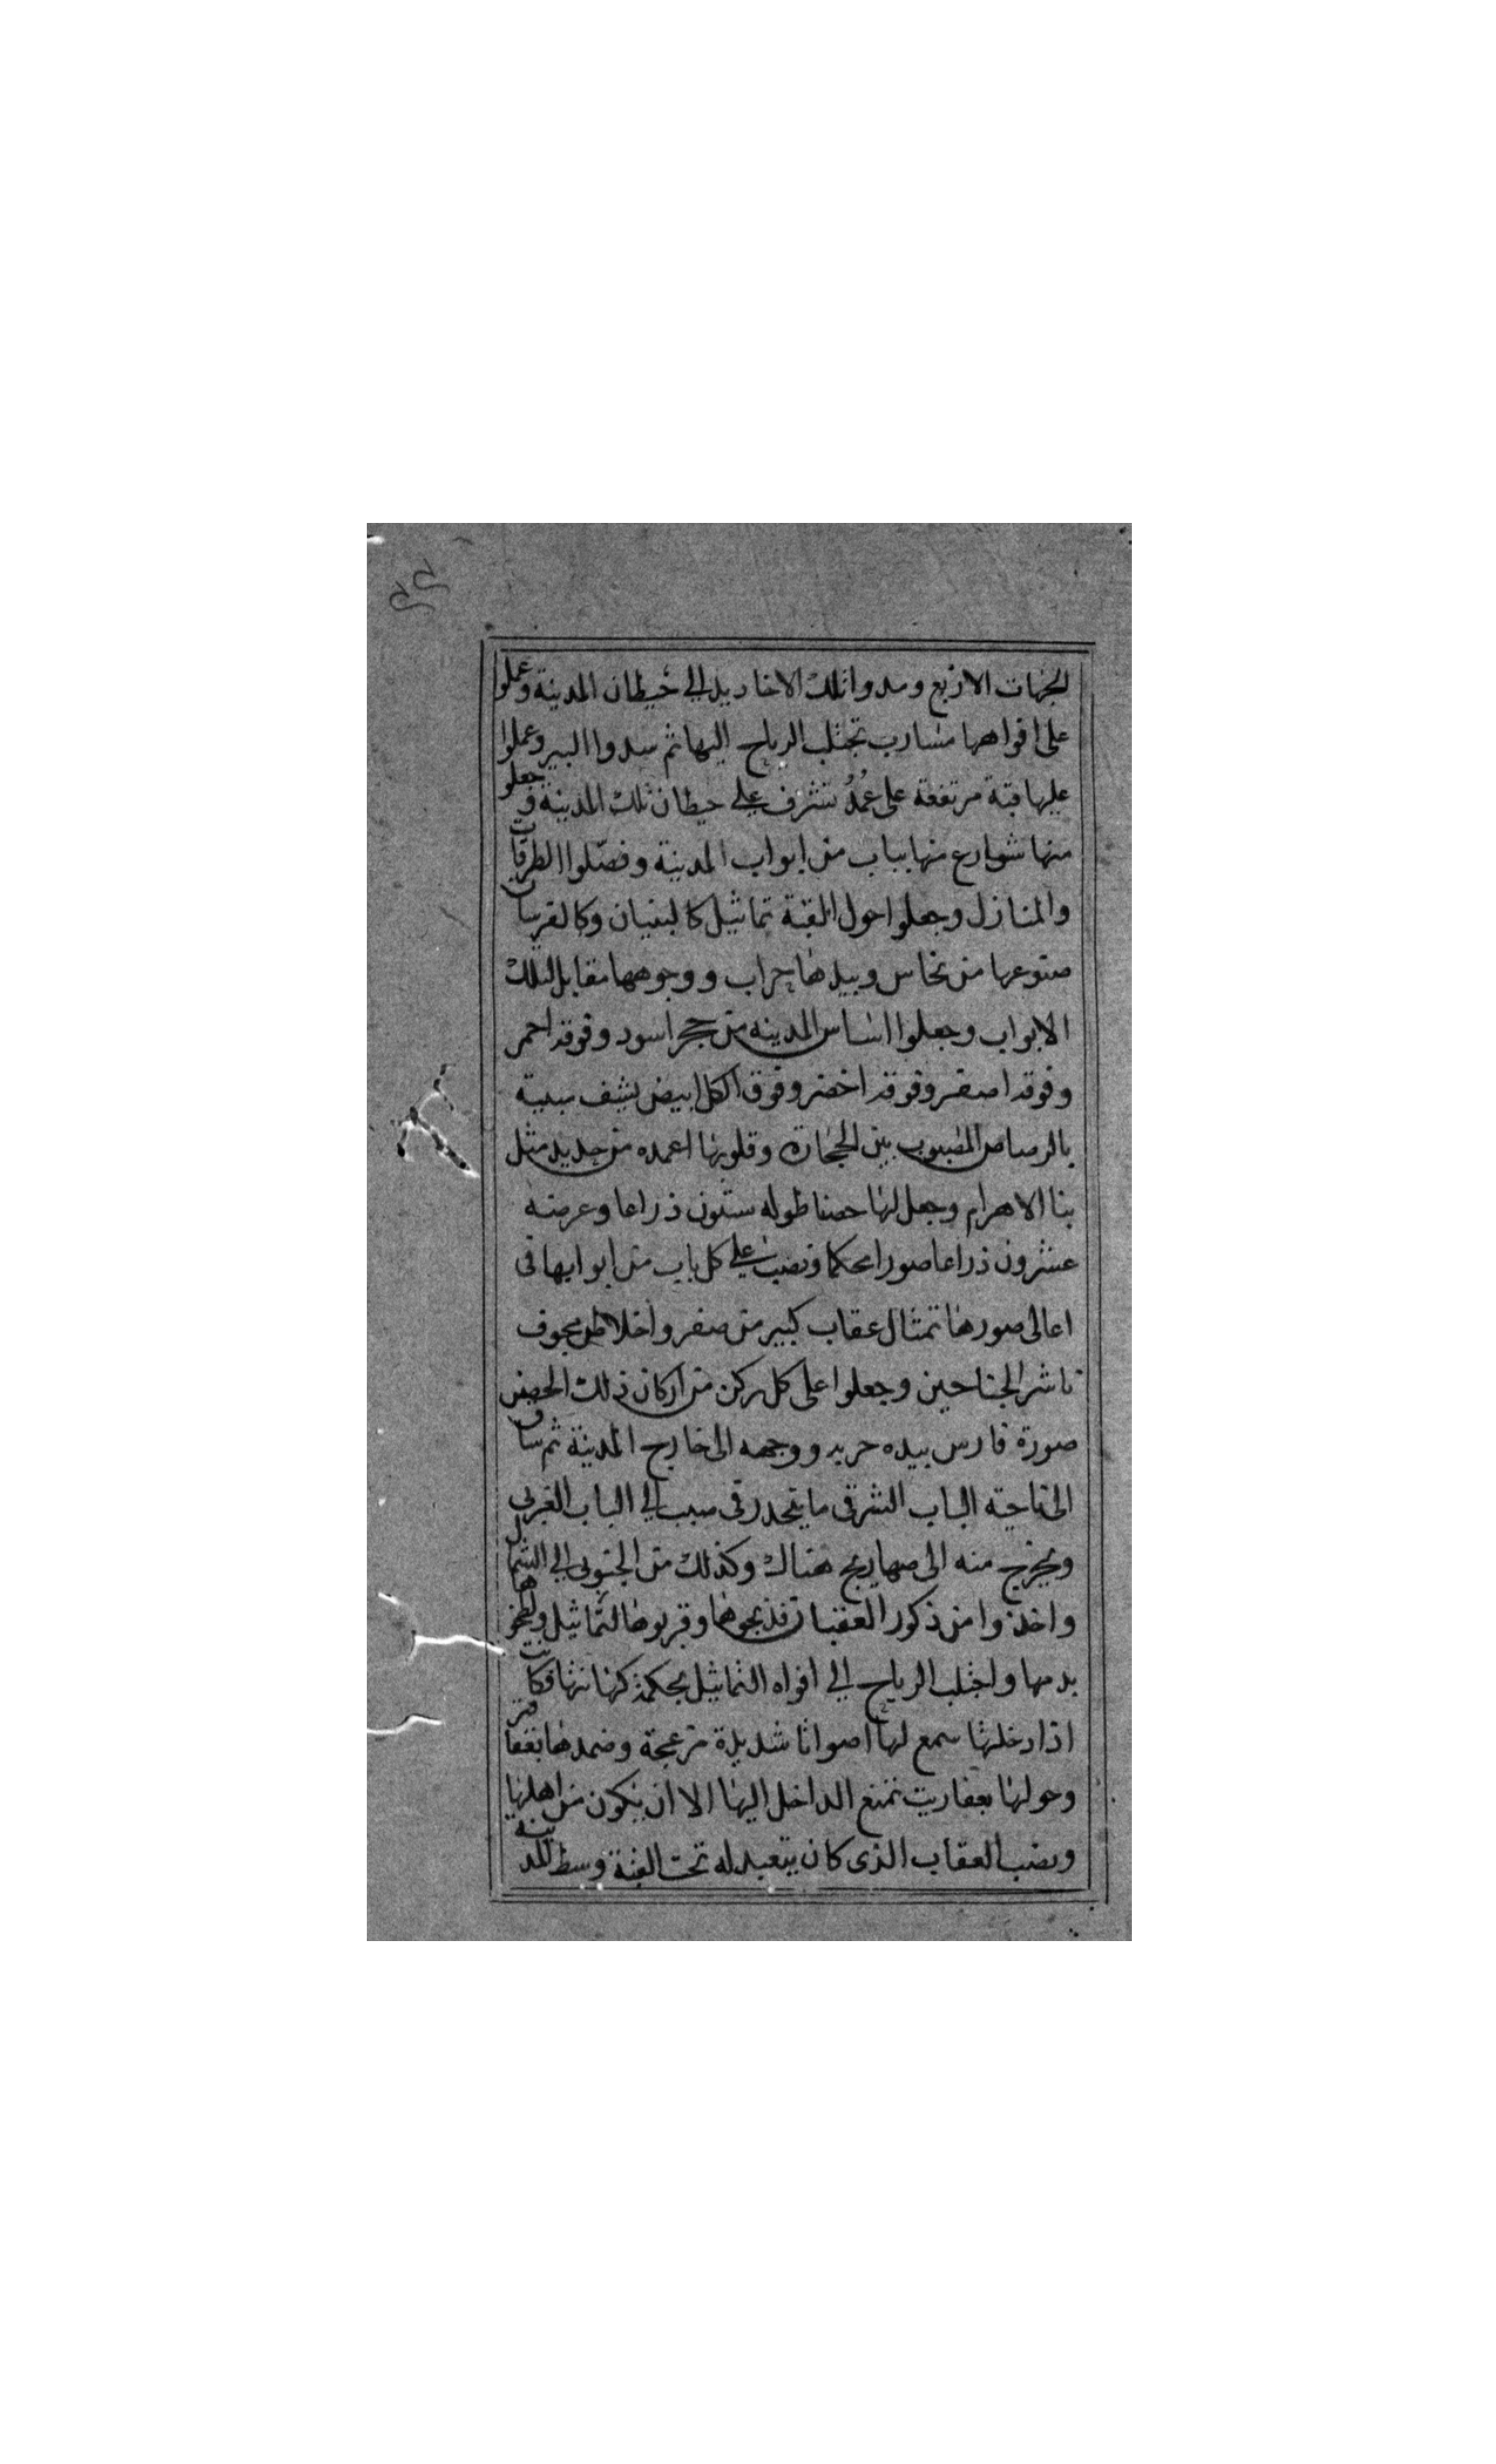 الجهات الاربع ومدوا تلك الاخاديد الي حيطان المدينة وعملوا
على افواهها مسارب تجتلب الرياح اليها ثم سدوا البير وعملوا
عليها قبة مرتفعة على عُمُدٌ تشرف علي حيطان تلك المدينة وجعلو
منها شوارع منها بباب من ابواب المدينة وفصّلوا الطرقات
والمنازل وجعلوا حول القبة تماثيل كالبنيان وكالفرسان
من نحاس وبيدها حراب ووجوهها مقابل لتلك
الابواب وجعلوا اساس المدينه من حجر اسود وفوقه احمر
وفوقه اصفر وفوقه اخضر وفوق الكل ابيض يشف مبنية
بالرصاص المصبوب بين الحجارة وقلوبها اعمده من حديد مثل
بنا الاهرام وجعل لها حصنا طوله ستون ذراعا وعرضه
عشرون ذراعا صورا محكما ونصب علي كل باب من ابوابها في
اعالى صورها تمثال عقاب كبير من صفر واخلاطن مجوف
ناشر الجناحين وجعلوا على كل ركن من اركان ذلك الحصن
صورة فارس بيده حربه ووجهه الى خارج المدينة ثم ساق
الى ناحية الباب الشرقي ما ينحدر في صبب الي الباب الغربي
ويخرج منه الى صهاريج هناك وكذلك من الجنوبي الي الشمال
واخذوا من ذكور العقبان فذبحوها وقربوها لتماثيل ولطخوها
بدمها واجتلب الرياح الي افواه التماثيل بحكمة كهانتها فكانت
اذا دخلتها سمع لها اصواتا شديدة مزعجة
وحولها بعفاريت تمنع الداخل اليها الا ان يكون من اهلها
ونصب العقاب الذى كان يتعبد له تحت القبة وسط المدينه